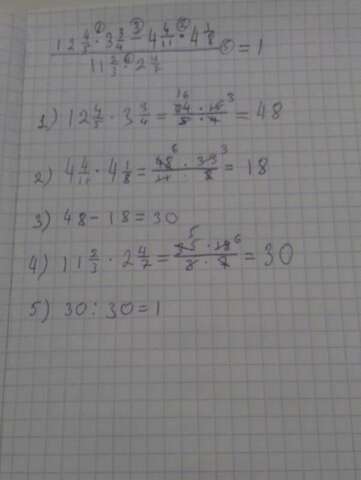 (12 4/5 · 3 3/4 − 4 4/11 · 4 1/8) / (11 2/3 · 2 4/7) = 1
1) 12 4/5 · 3 3/4 = (64 · 15)/(5 · 4) = 48
2) 4 4/11 · 4 1/8 = (48 · 33)/(11 · 8) = 18
3) 48 − 18 = 30
4) 11 2/3 · 2 4/7 = (35 · 18)/(3 · 7) = 30
5) 30 : 30 = 1